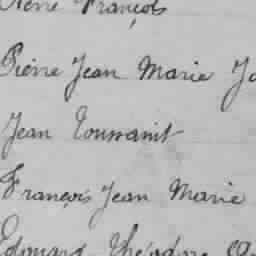 Pierre François
Pierre Jean Marie
Jean Toussaint
François Jean Marie
Edouard Théodore